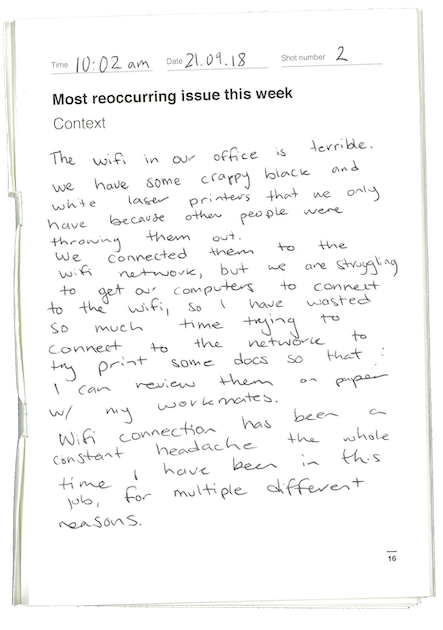 Time 10:02 am Date 21.09.18 Shot number 2
Most reoccurring issue this week
Context
The wifi in our office is terrible.
we have some crappy black and
white laser printers that we only
have because other people were
throwing them out.
We connected them to the
wifi network, but we are struggling
to get our computers to connect
to the wifi, so I have wasted
so much time trying to
connect to the network to
try print some docs so that
I can review them on paper
w/ my workmates.
Wifi connection has been a
constant headache the whole
time I have been in this
job, for multiple different
reasons.
16